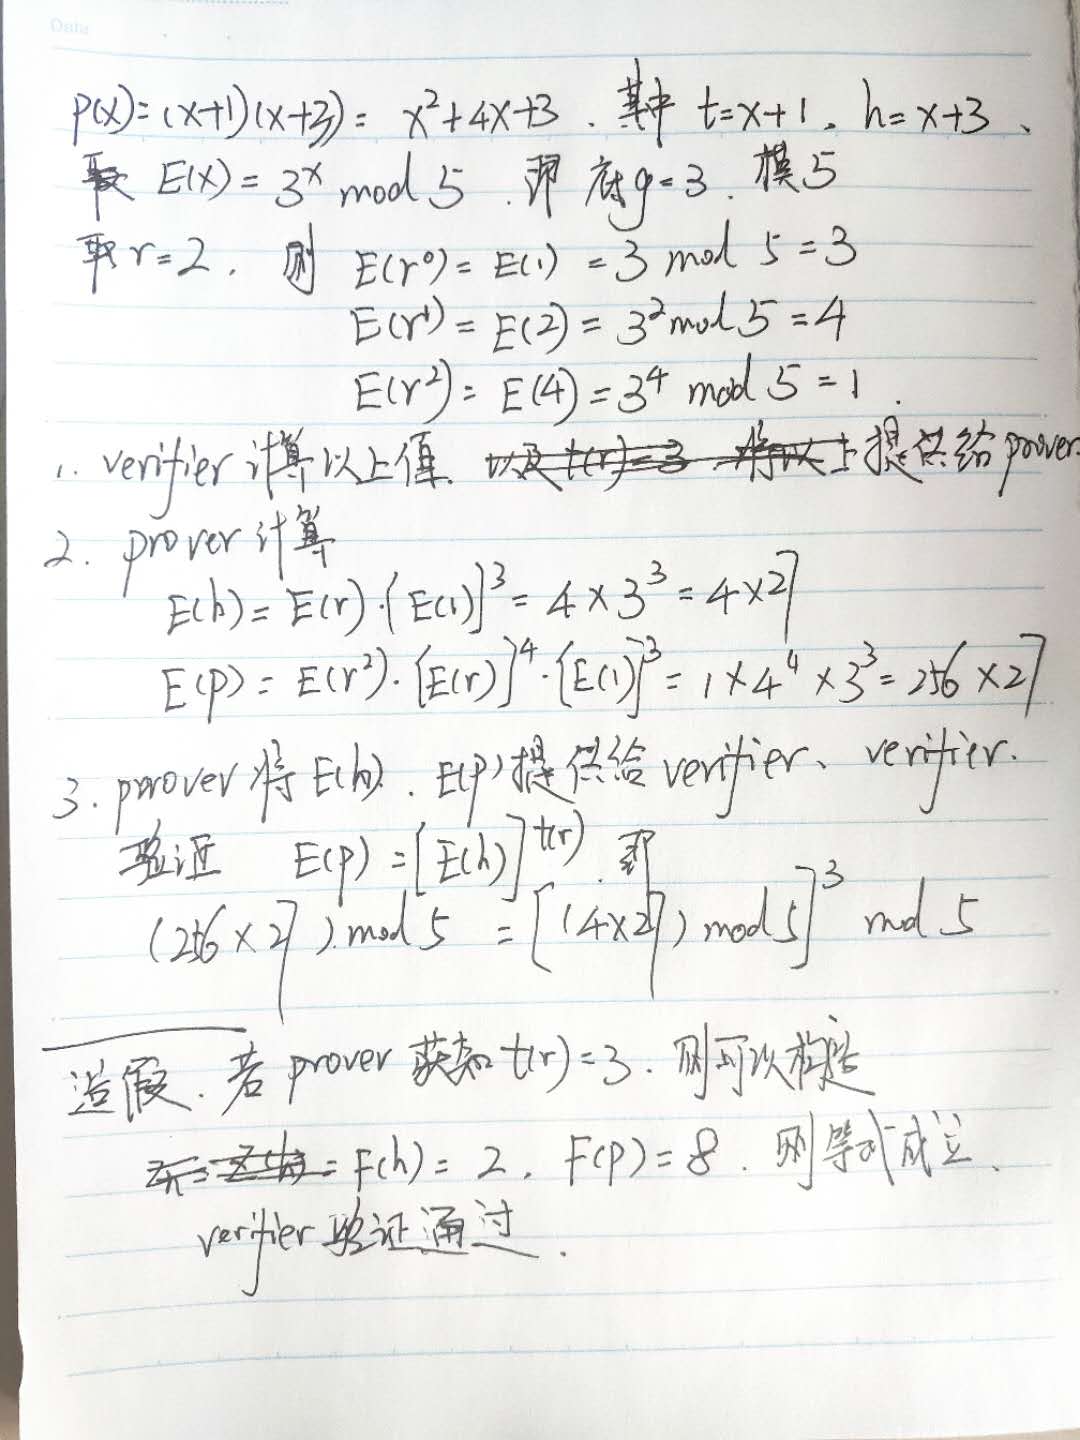 Data
p(x)=(x+1)(x+3)= x²+4x+3 . 其中 t=x+1 、h=x+3 、
取 E(x)= 3ˣ mod 5 .即 底g=3 . 模5
取r=2 . 则 E(r⁰)= E(1) =3 mod 5 =3
E(r¹)= E(2)= 3² mod 5 =4
E(r²)= E(4)=3⁴ mod 5 =1 .
1. verifier 计算以上值. 以及t(r)=3 将以上提供给prover.
2. prover计算
E(h)= E(r)·[E(1)]³= 4×3³=4×27
E(p)= E(r²)·[E(r)]⁴·[E(1)]³= 1×4⁴×3³= 256×27
3. prover将E(h). E(p)提供给verifier、verifier.
验证 E(p)=[E(h)]ᵗ⁽ʳ⁾ .即
(256×27) mod 5 = [(4×27) mod 5]³ mod 5
造假. 若 prover 获知 t(r)=3. 则可以构造
= F(h)= 2. F(p)= 8 . 则等式成立、
verifier验证通过 .